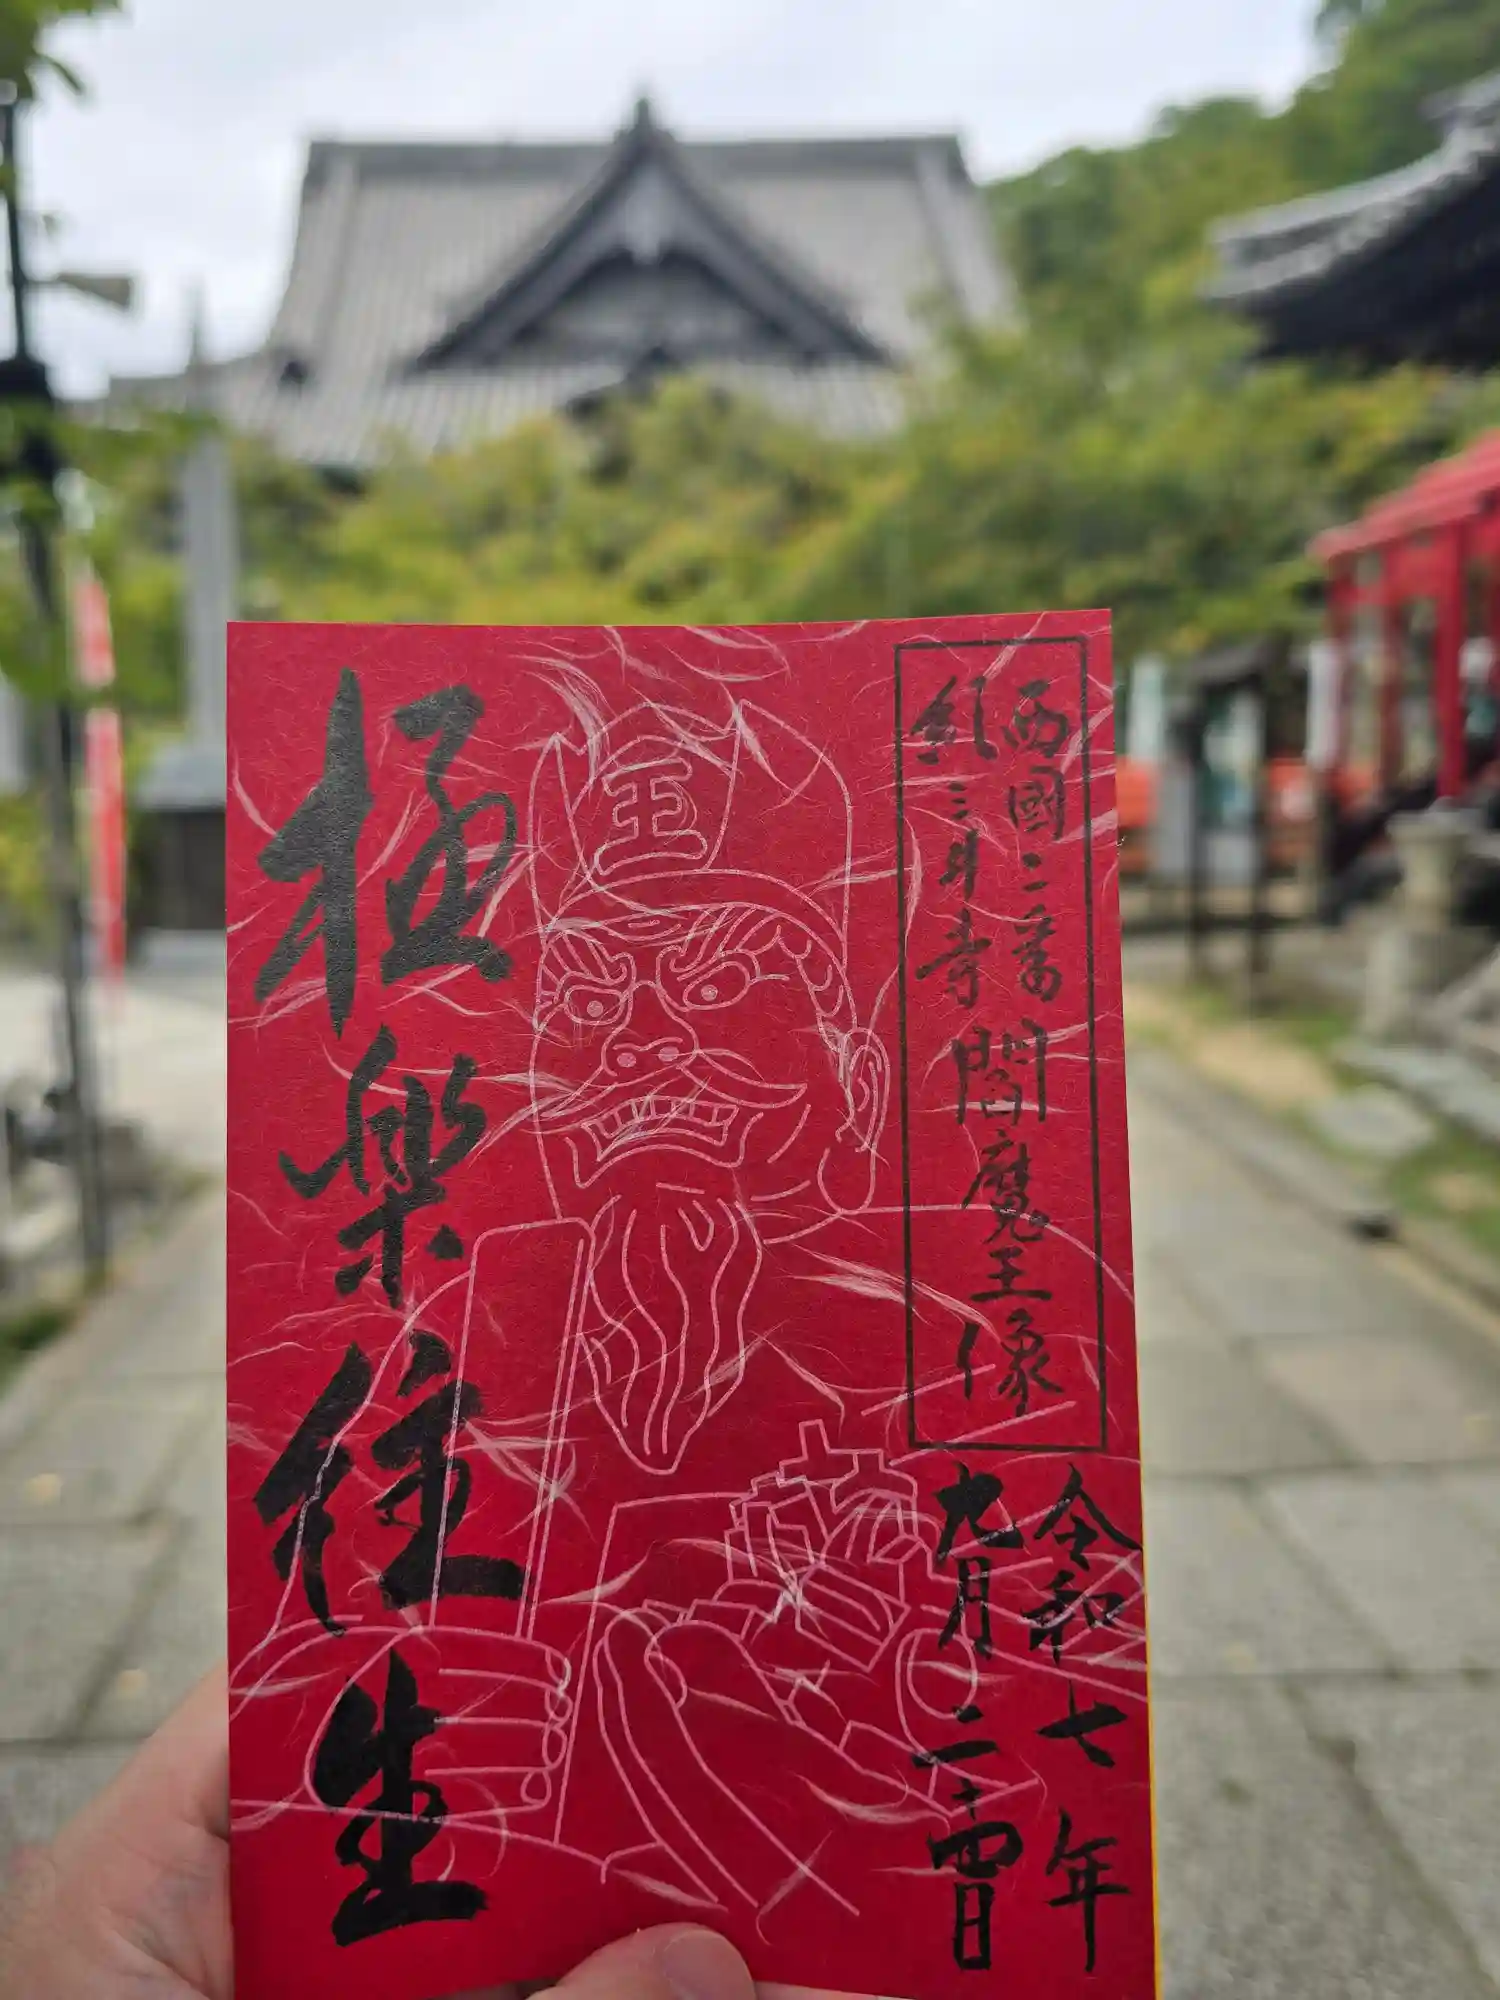 西國二番
紀三井寺
閻魔王像
令和七年
九月二十四日
王
極樂往生